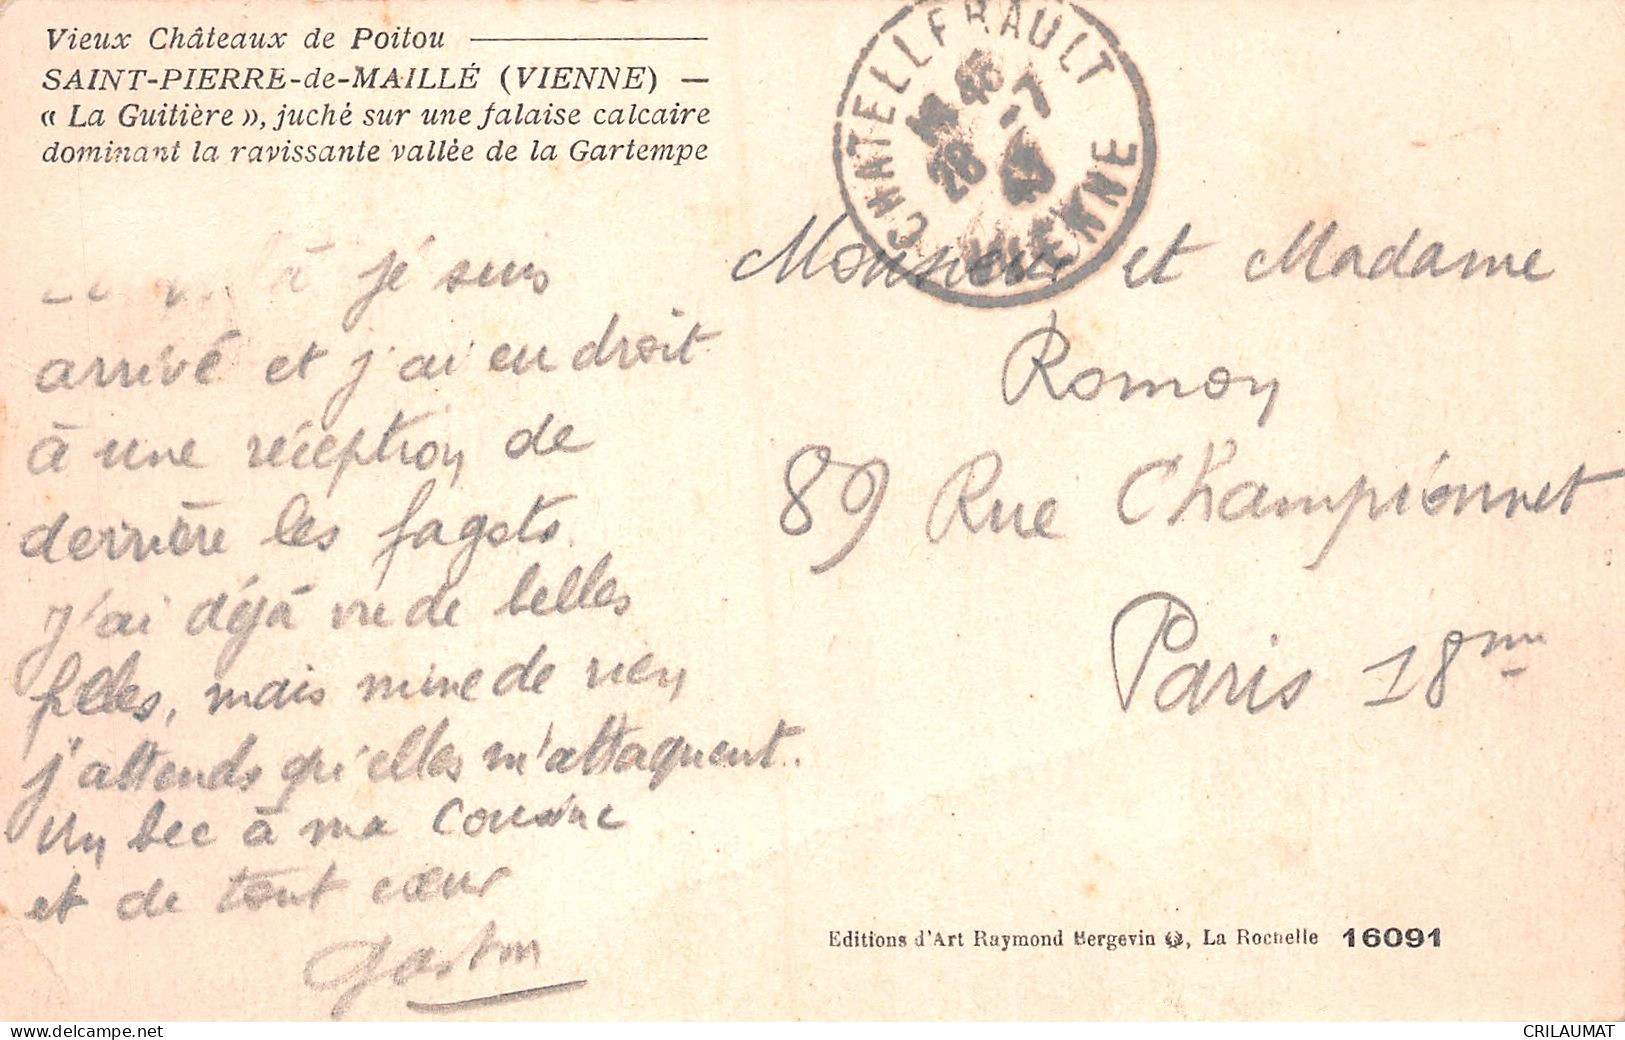 Vieux Châteaux de Poitou
SAINT-PIERRE-de-MAILLÉ (VIENNE) —
« La Guitière », juché sur une falaise calcaire
dominant la ravissante vallée de la Gartempe
CHATELLERAULT
VIENNE
45
28 -7
à je suis
arrivé et j'ai eu droit
à une réception de
derrière les fagots.
J'ai déjà vu de belles
filles, mais mine de rien
j'attends qu'elles m'attaquent.
Un bec à ma cousine
et de tout cœur
Gaston
Monsieur et Madame
Romon
89 Rue Championnet
Paris 18me
Editions d'Art Raymond Bergevin, La Rochelle 16091
www.delcampe.net
CRILAUMAT